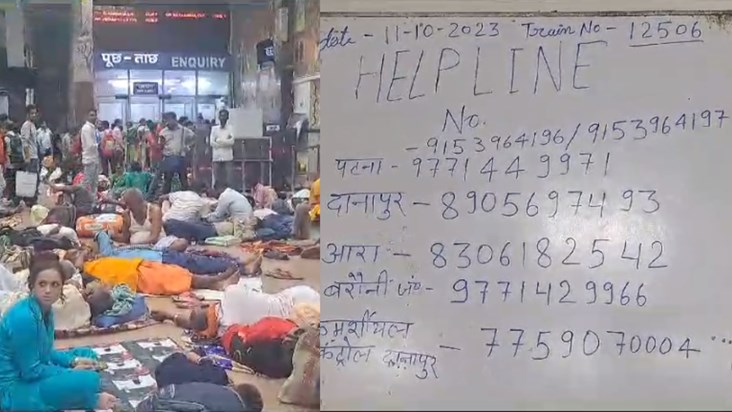 पूछ-ताछ ENQUIRY
Date - 11-10-2023 Train No - 12506
HELPLINE
No.
- 9153964196/9153964197
पटना - 9771449971
दानापुर - 8905697493
आरा - 8306182542
बरौनी जं० - 9771429966
कमर्शीयल
कंट्रोल दानापुर - 7759070004